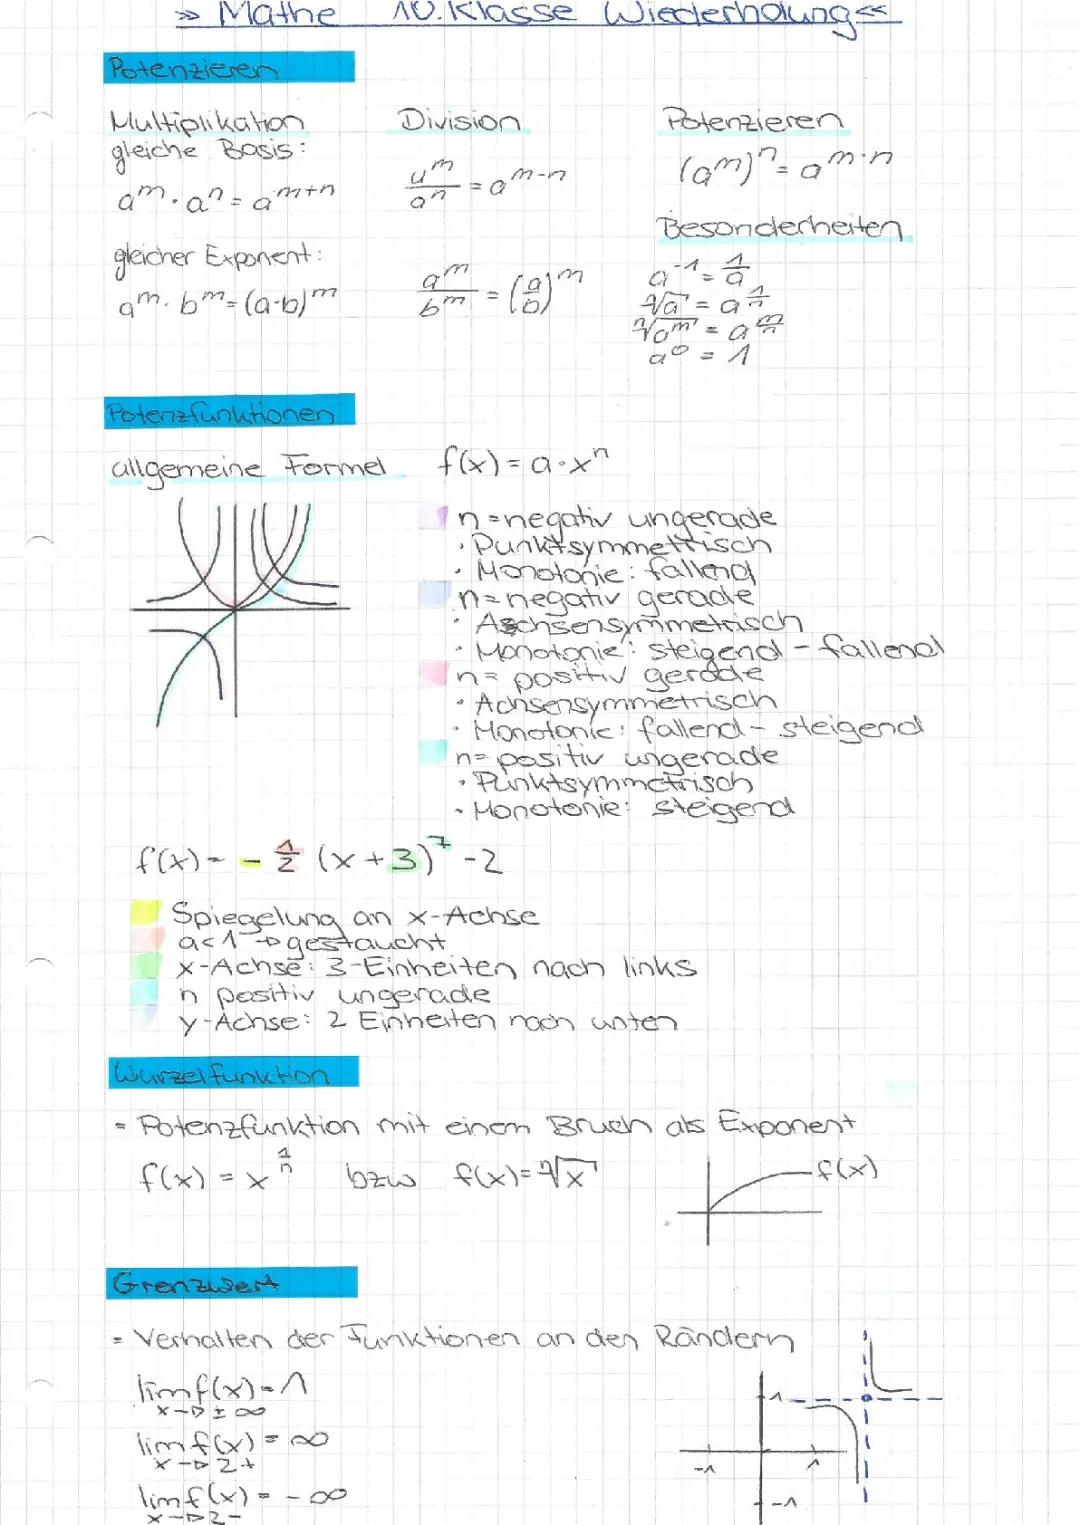 » Mathe 10. Klasse Wiederholung «
Potenzieren
Multiplikation Division Potenzieren
gleiche Basis:
a^m · a^n = a^m+n u^m/a^n = a^m-n (a^m)^n = a^m·n
Besonderheiten
gleicher Exponent:
a^m · b^m = (a·b)^m a^m/b^m = (a/b)^m a^-1 = 1/a
ⁿ√a = a^1/n
ⁿ√a^m = a^m/n
a^0 = 1
Potenzfunktionen
allgemeine Formel f(x) = a·x^n
n = negativ ungerade
· Punktsymmetrisch
· Monotonie: fallend
n = negativ gerade
· Achsensymmetrisch
· Monotonie: steigend - fallend
n = positiv gerade
· Achsensymmetrisch
· Monotonie: fallend - steigend
n = positiv ungerade
· Punktsymmetrisch
· Monotonie: steigend
f(x) = - 1/2 (x + 3)^7 - 2
Spiegelung an x-Achse
a<1 → gestaucht
x-Achse: 3-Einheiten nach links
n positiv ungerade
y-Achse: 2 Einheiten nach unten
Wurzelfunktion
= Potenzfunktion mit einem Bruch als Exponent
f(x) = x^1/n bzw f(x) = ⁿ√x f(x)
Grenzwert
= Verhalten der Funktionen an den Rändern
lim f(x) = 1
x → ± ∞
lim f(x) = ∞
x → 2+
lim f(x) = - ∞
x → 2-
1
-1 1
-1